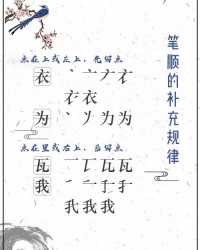 笔顺的补充规律
点在上或左上，先写点
衣 丶 亠 ナ 才
衣 衣
为 丶 ノ 为 为
点在里或右上，后写点
瓦 一 瓦 瓦
我 一 二 千 手
我 我 我